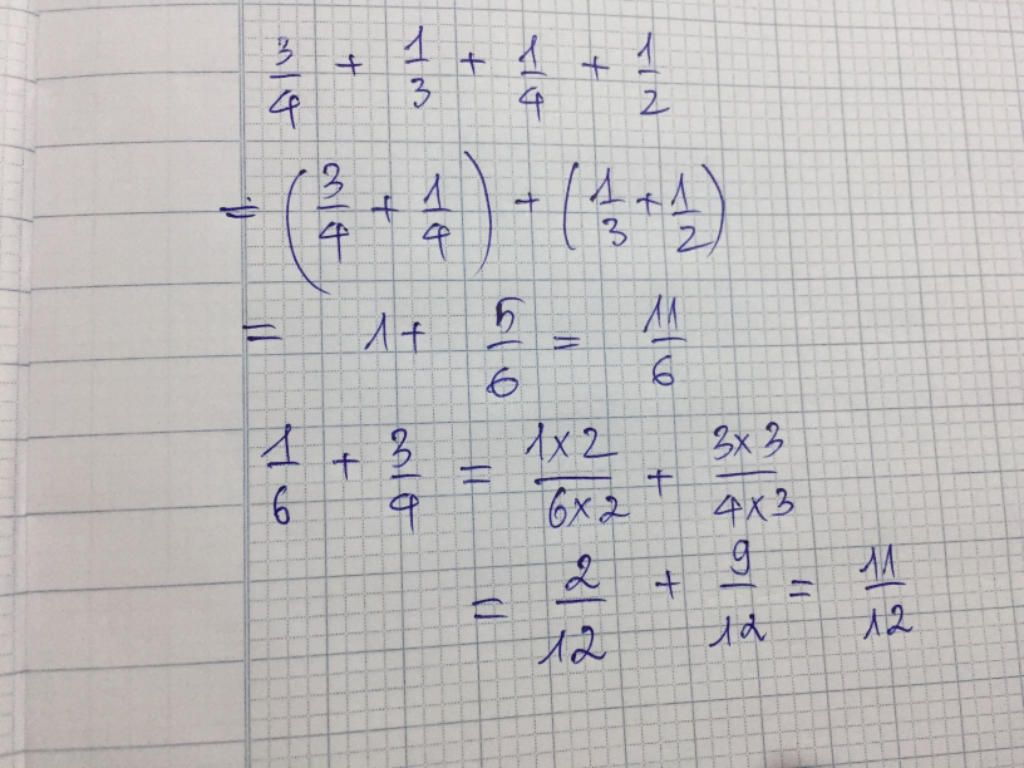 3/4 + 1/3 + 1/4 + 1/2
= (3/4 + 1/4) + (1/3 + 1/2)
= 1 + 5/6 = 11/6
1/6 + 3/4 = 1x2/6x2 + 3x3/4x3
= 2/12 + 9/12 = 11/12